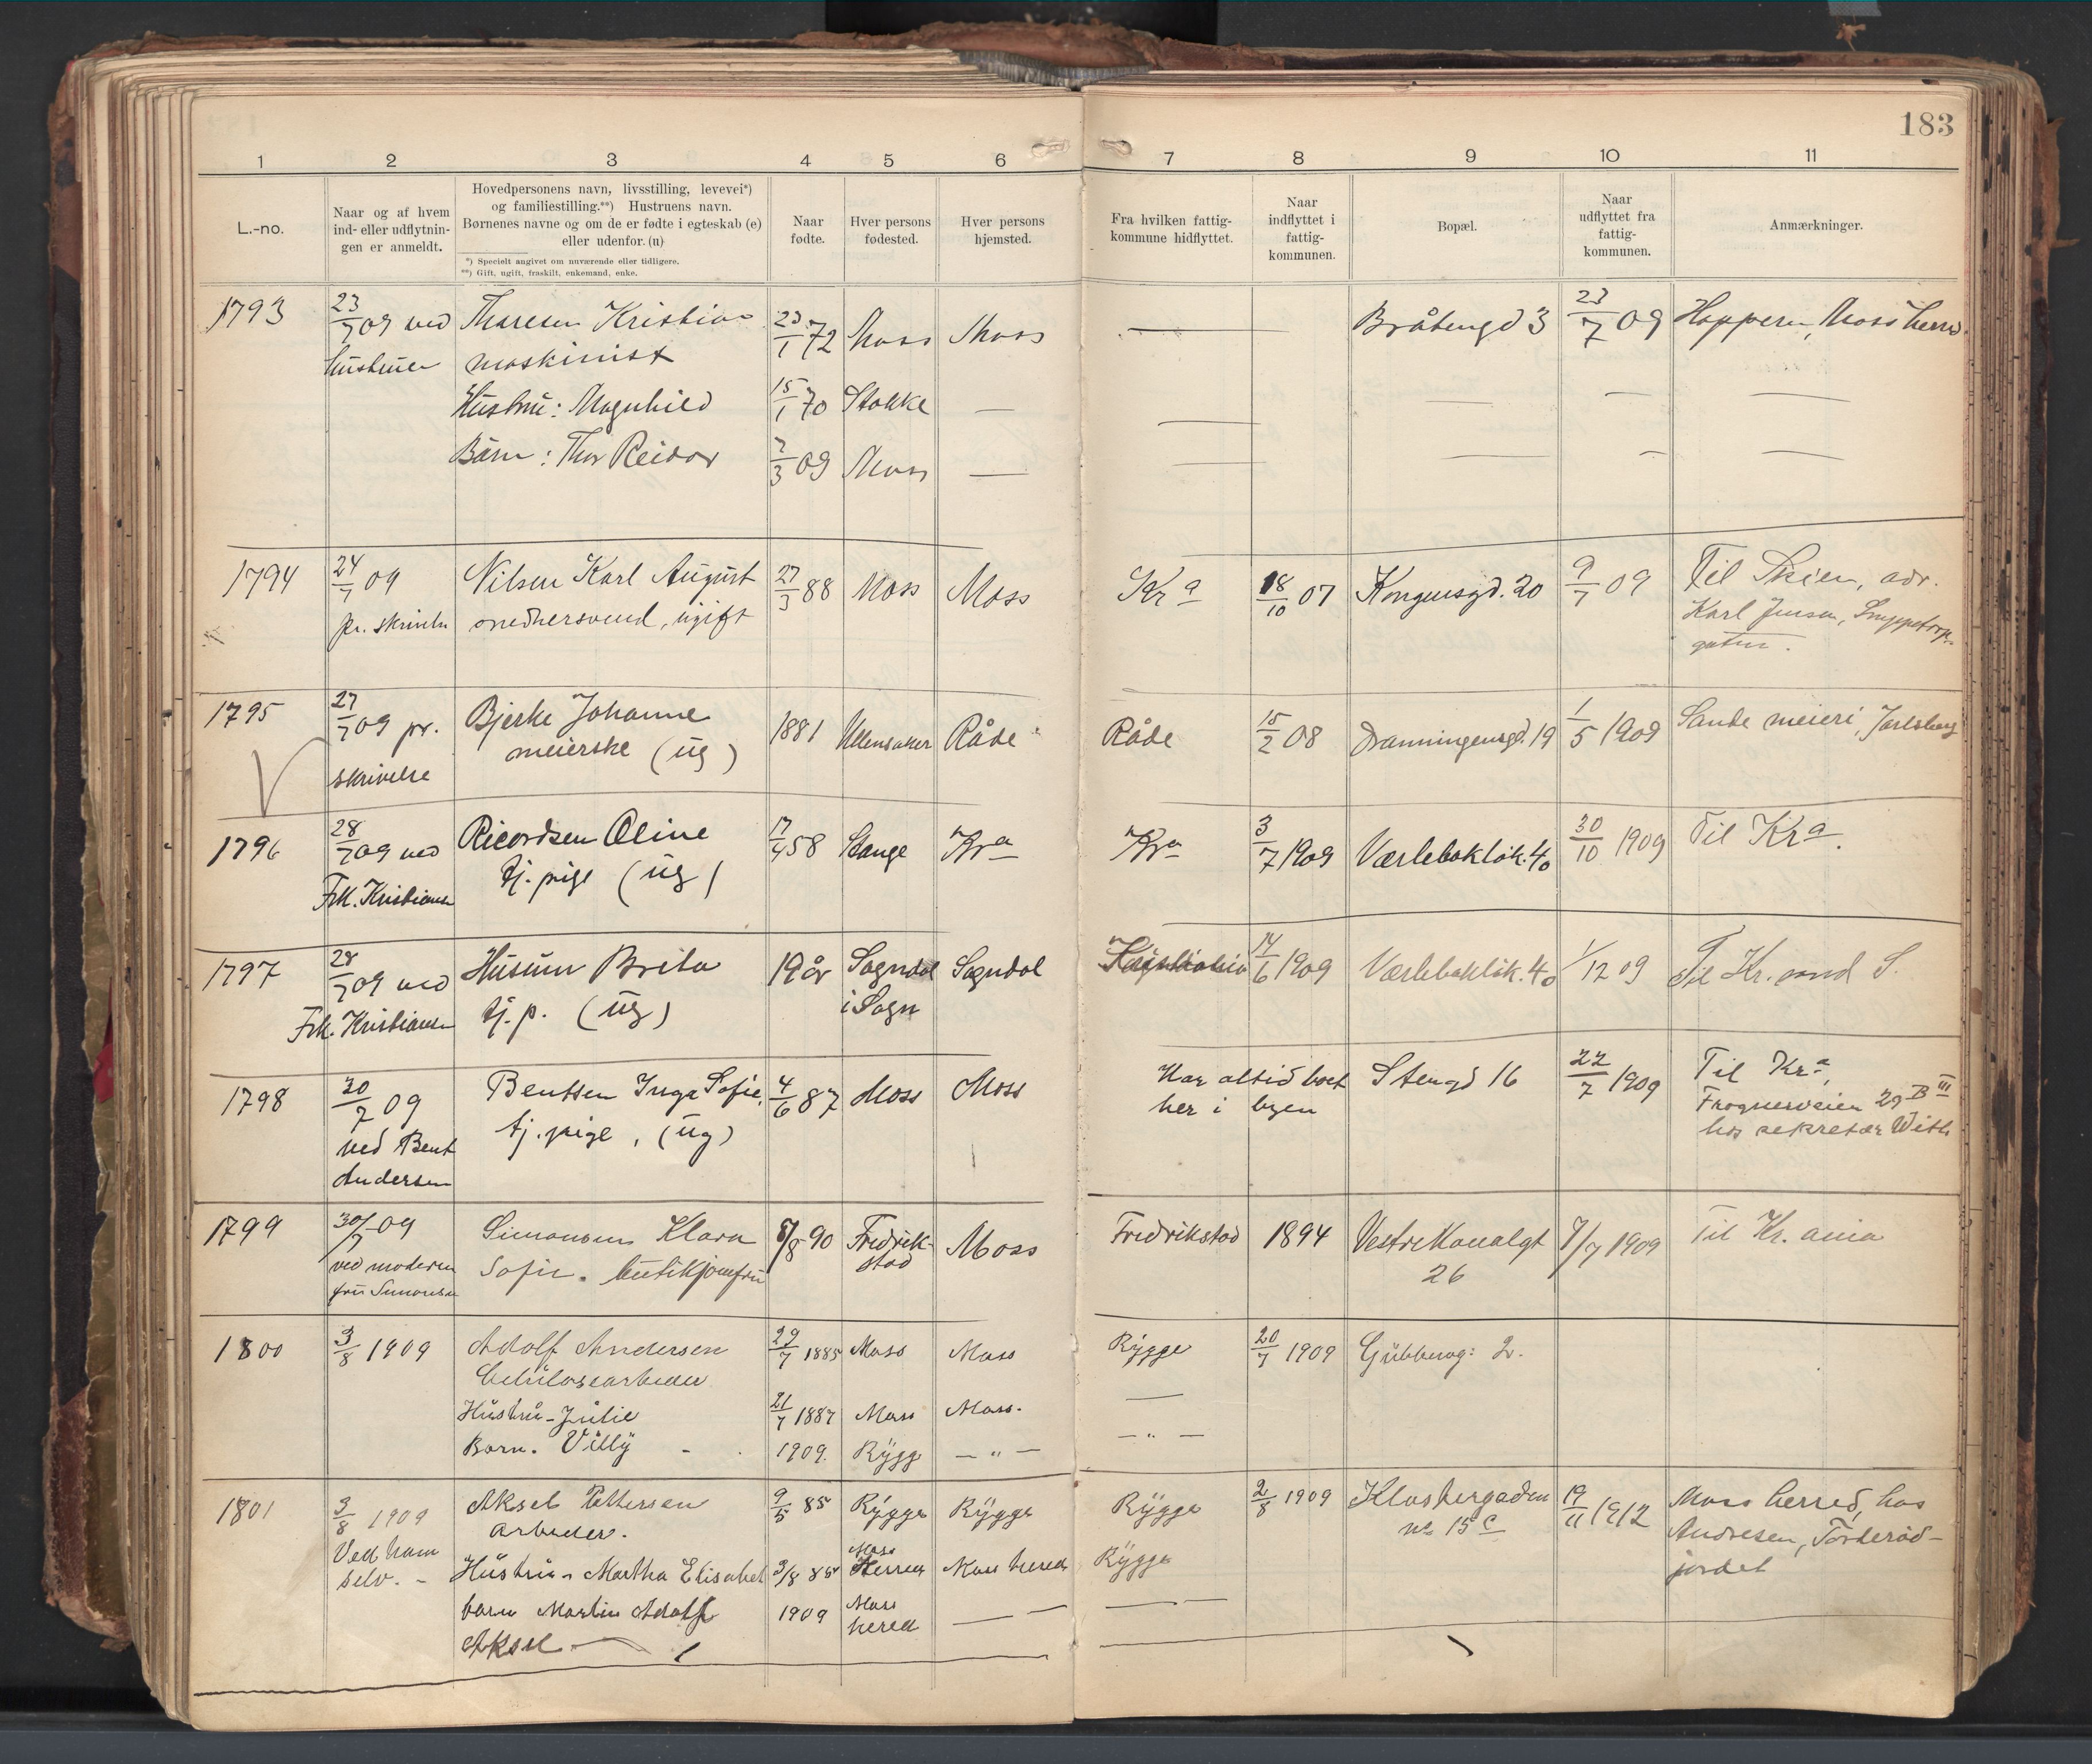 183
1 2 3 4 5 6 7 8 9 10 11
L.-no.
Naar og af hvem
ind- eller udflytnin-
gen er anmeldt.
Hovedpersonens navn, livsstilling, levevei*)
og familiestilling.**) Hustruens navn.
Børnenes navne og om de er fødte i egteskab (e)
eller udenfor. (u)
*) Specielt angivet om nuværende eller tidligere.
**) Gift, ugift, fraskilt, enkemand, enke.
Naar
fødte.
Hver persons
fødested.
Hver persons
hjemsted.
Fra hvilken fattig-
kommune hidflyttet.
Naar
indflyttet i
fattig-
kommunen.
Bopæl.
Naar
udflyttet fra
fattig-
kommunen.
Anmærkninger.
1793 23/7 09 ved Thoresen Kristian 23/1 72 Moss Moss — — Bråtengd 3 23/7 09 Hoppern, Moss herred.
hustruen maskinist
Hustru: Magnhild 15/1 70 Stokke — — — — —
Barn: Thor Reidar 7/3 09 Moss — — — — —
1794 24/7 09 Nilsen Karl August 27/3 88 Moss Moss Kra 18/10 07 Kongensgd. 20 9/7 09 Til Skien, adr.
pr. skrivelse snedkersvend, ugift Karl Jensen, Snippetorp-
gaten.
1795 27/7 09 pr. Bjerke Johanne 1881 Ullensaker Råde Råde 15/2 08 Dronningensgd. 19 1/5 1909 Sande meieri, Jarlsberg
skrivelse meierske (ug)
1796 28/7 09 ved Ricordsen Oline 17/4 58 Stange Kra Kra 3/7 1909 Værlebakløk. 40 30/10 1909 Til Kra.
Frk. Kristiansen tj. pige (ug)
1797 28/7 09 ved Husum Brita 19 år Sogndal Sogndal Kristiania 14/6 1909 Værlebakløk. 40 1/12 09 Til Kr. sand S.
Frk. Kristiansen tj. p. (ug) i Sogn
1798 30/7 09 Bentsen Inga Sofie, 4/6 87 Moss Moss Har altid boet Stengd 16 22/7 1909 Til Kra,
ved Bent tj. pige, (ug) her i byen Frognerveien 29 B III
Andersen hos sekretær With
1799 30/7 09 Simonsen Klara 6/8 90 Fredrik- Moss Fredrikstad 1894 Vestre Kanalgt 7/7 1909 Til Kr. ania
ved moderen Sofie. butikjomfru stad 26
fru Simonsen
1800 3/8 1909 Adolf Andersen 29/7 1885 Moss Moss Rygge 20/7 1909 Gubberog: 2.
Celulosearbeder
Hustru - Julie 21/7 1887 Moss Moss. —
Barn. Villy - . 1909. Rygg — " — — " —
1801 3/8 1909 Aksel Pettersen 9/5 85 Rygge Rygge Rygge 2/8 1909 Klostergaden 19/11 1912 Moss herred, hos
Ved ham arbeder. no 15 c Andresen, Torderød-
selv. - Hustru - Martha Elisabet 3/8 85 Moss Herred Moss herred Rygge jordet
barn Martin Adolf 1909 Moss herred — — — —
Aksel —